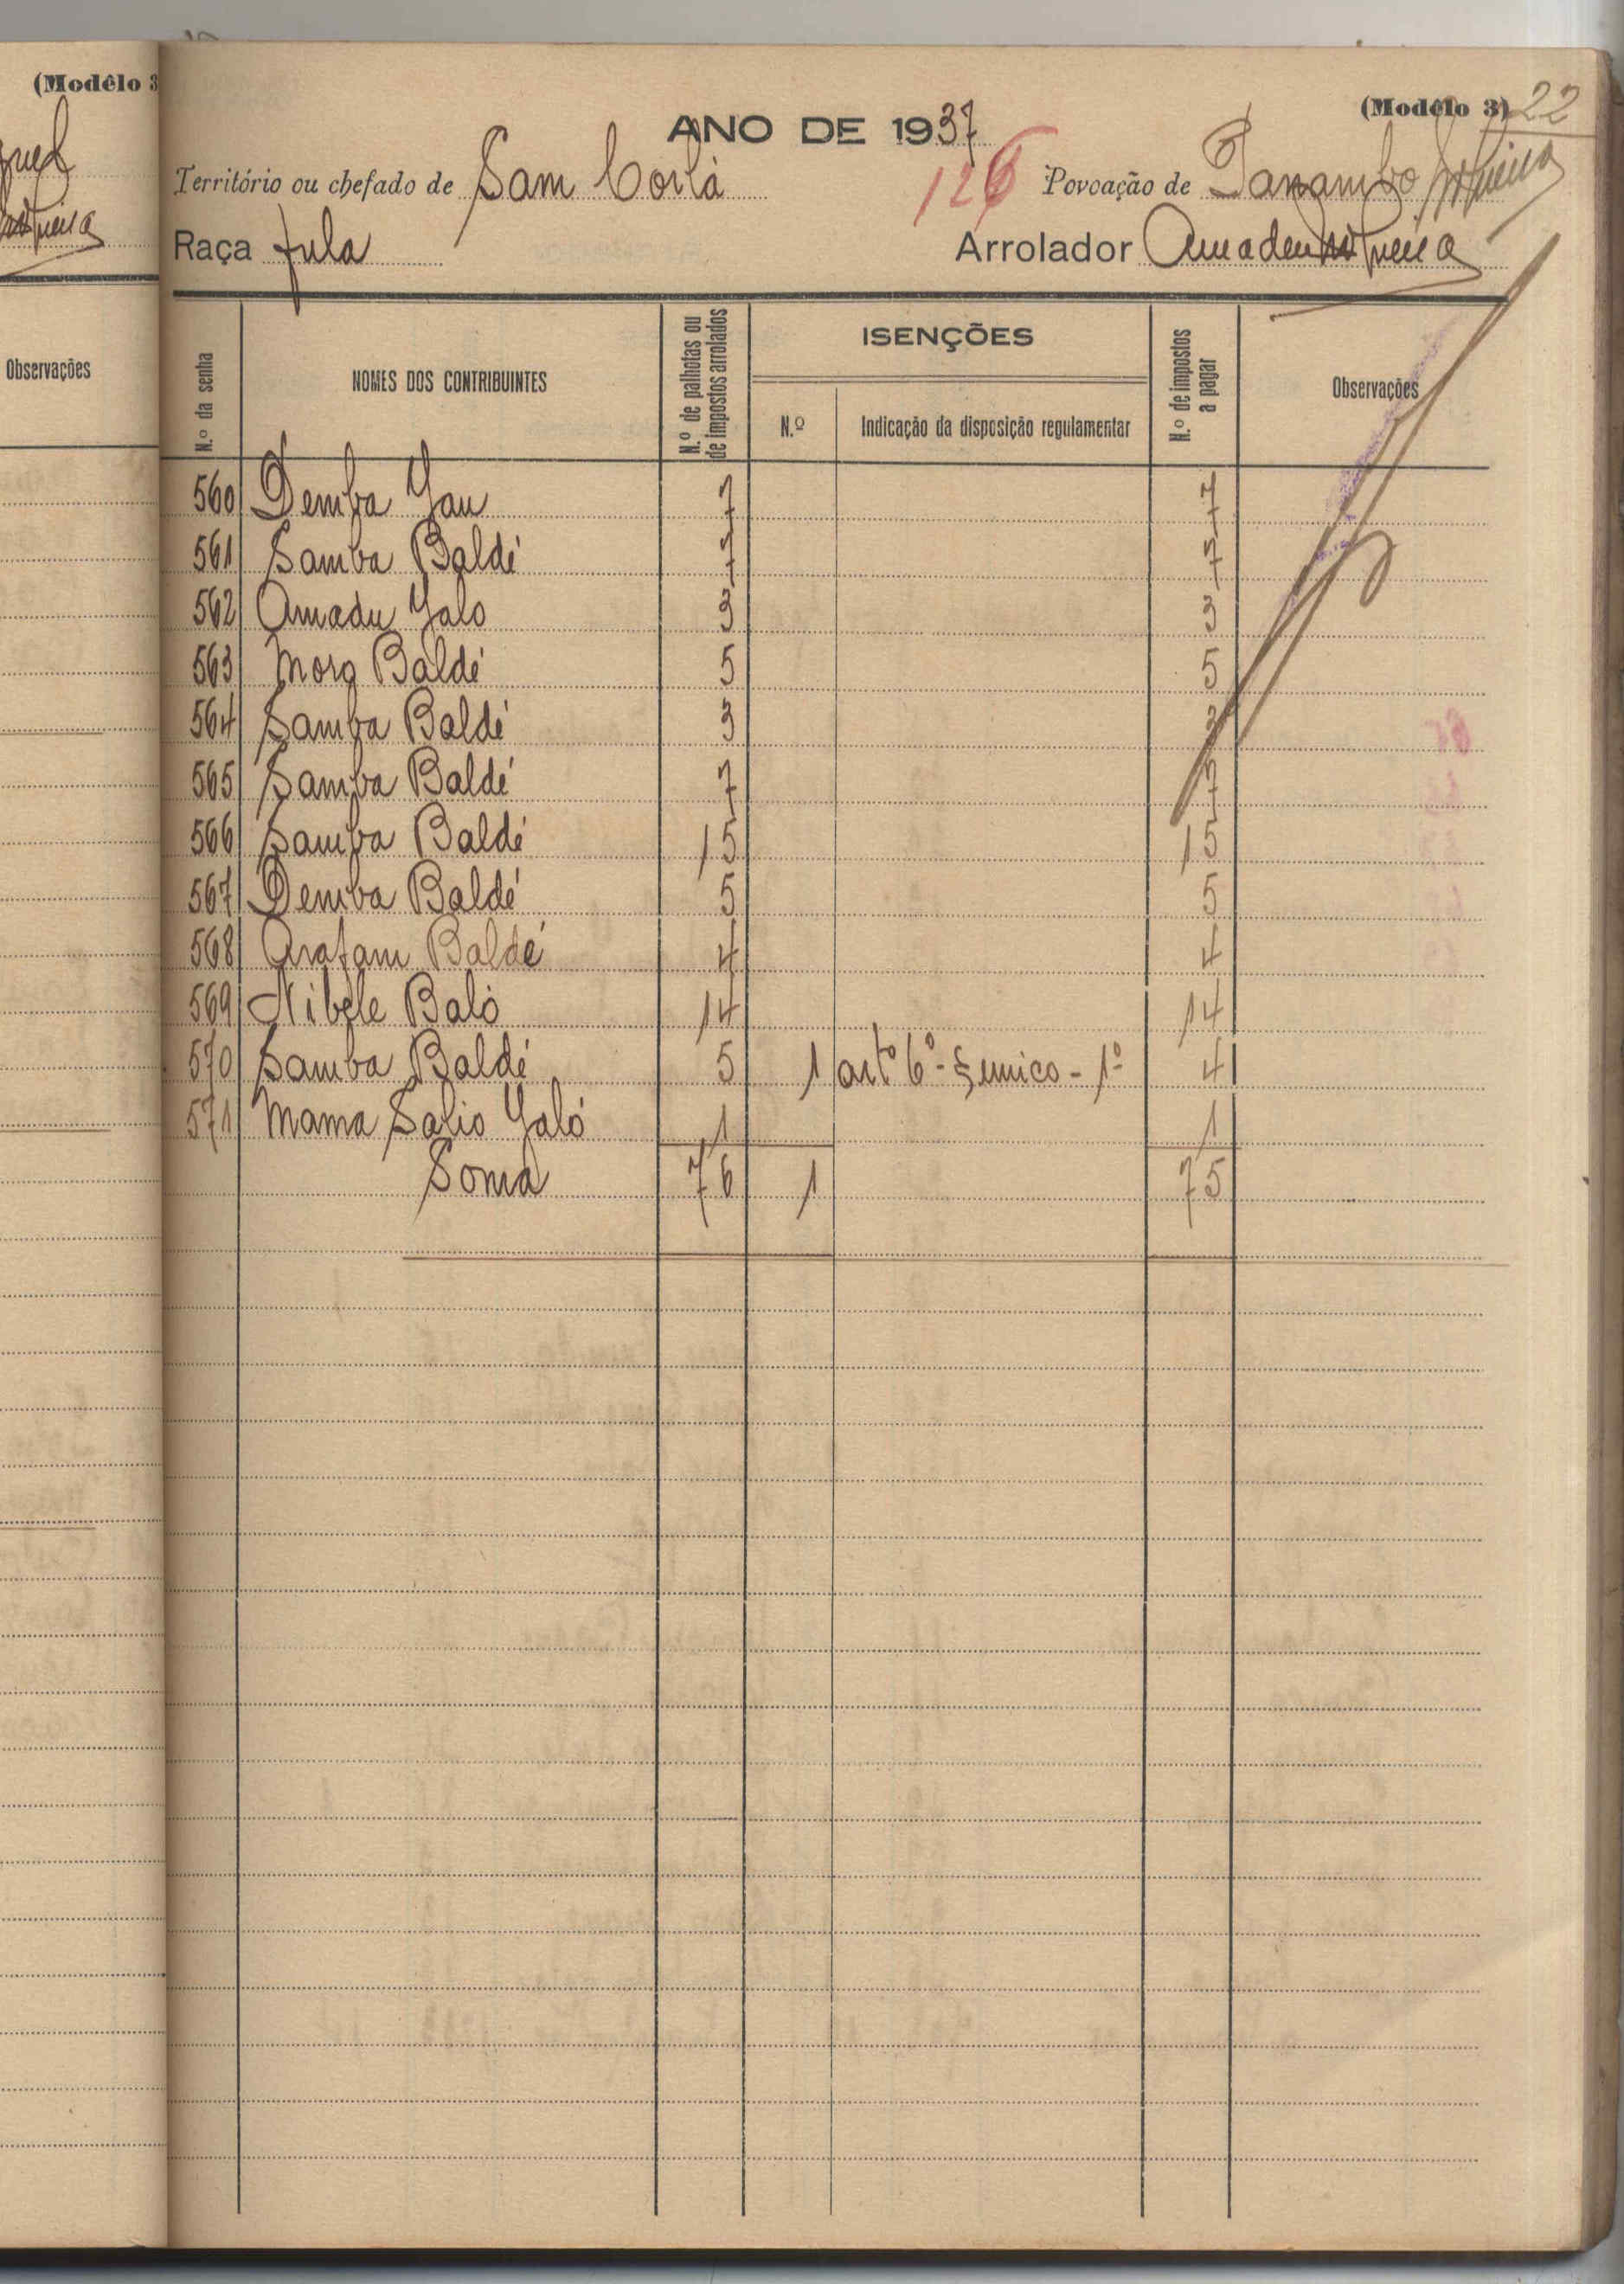 (Modêlo 3
Observações
(Modêlo 3) 22
ANO DE 1937
Território ou chefado de Sam Corlá 126 Povoação de
Raça Fula Arrolador Amadeu
N.º da senha NOMES DOS CONTRIBUINTES N.º de palhotas ou de impostos arrolados ISENÇÕES N.º de impostos a pagar Observações
N.º Indicação da disposição regulamentar
560 Demba Jau 7 7
561 Samba Baldé 7 7
562 Amadu Jalo 3 3
563 Mora Baldé 5 5
564 Samba Baldé 3 3
565 Samba Baldé 7 7
566 Samba Baldé 15 15
567 Demba Baldé 5 5
568 Arafam Baldé 4 4
569 Nibele Baló 14 14
570 Samba Baldé 5 1 artº 6º - § unico - 1º 4
571 Mama Salio Jaló 1 1
Soma 76 1 75